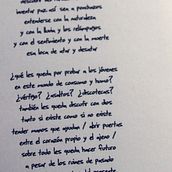 inventar paz así sea a ponchazos
entenderse con la naturaleza
y con la lluvia y los relámpagos
y con el sentimiento y con la muerte
esa loca de atar y desatar
¿qué les queda por probar a los jóvenes
en este mundo de consumo y humo?
¿vértigo? ¿asaltos? ¿discotecas?
también les queda discutir con dios
tanto si existe como si no existe
tender manos que ayudan / abrir puertas
entre el corazón propio y el ajeno /
sobre todo les queda hacer futuro
a pesar de los ruines de pasado